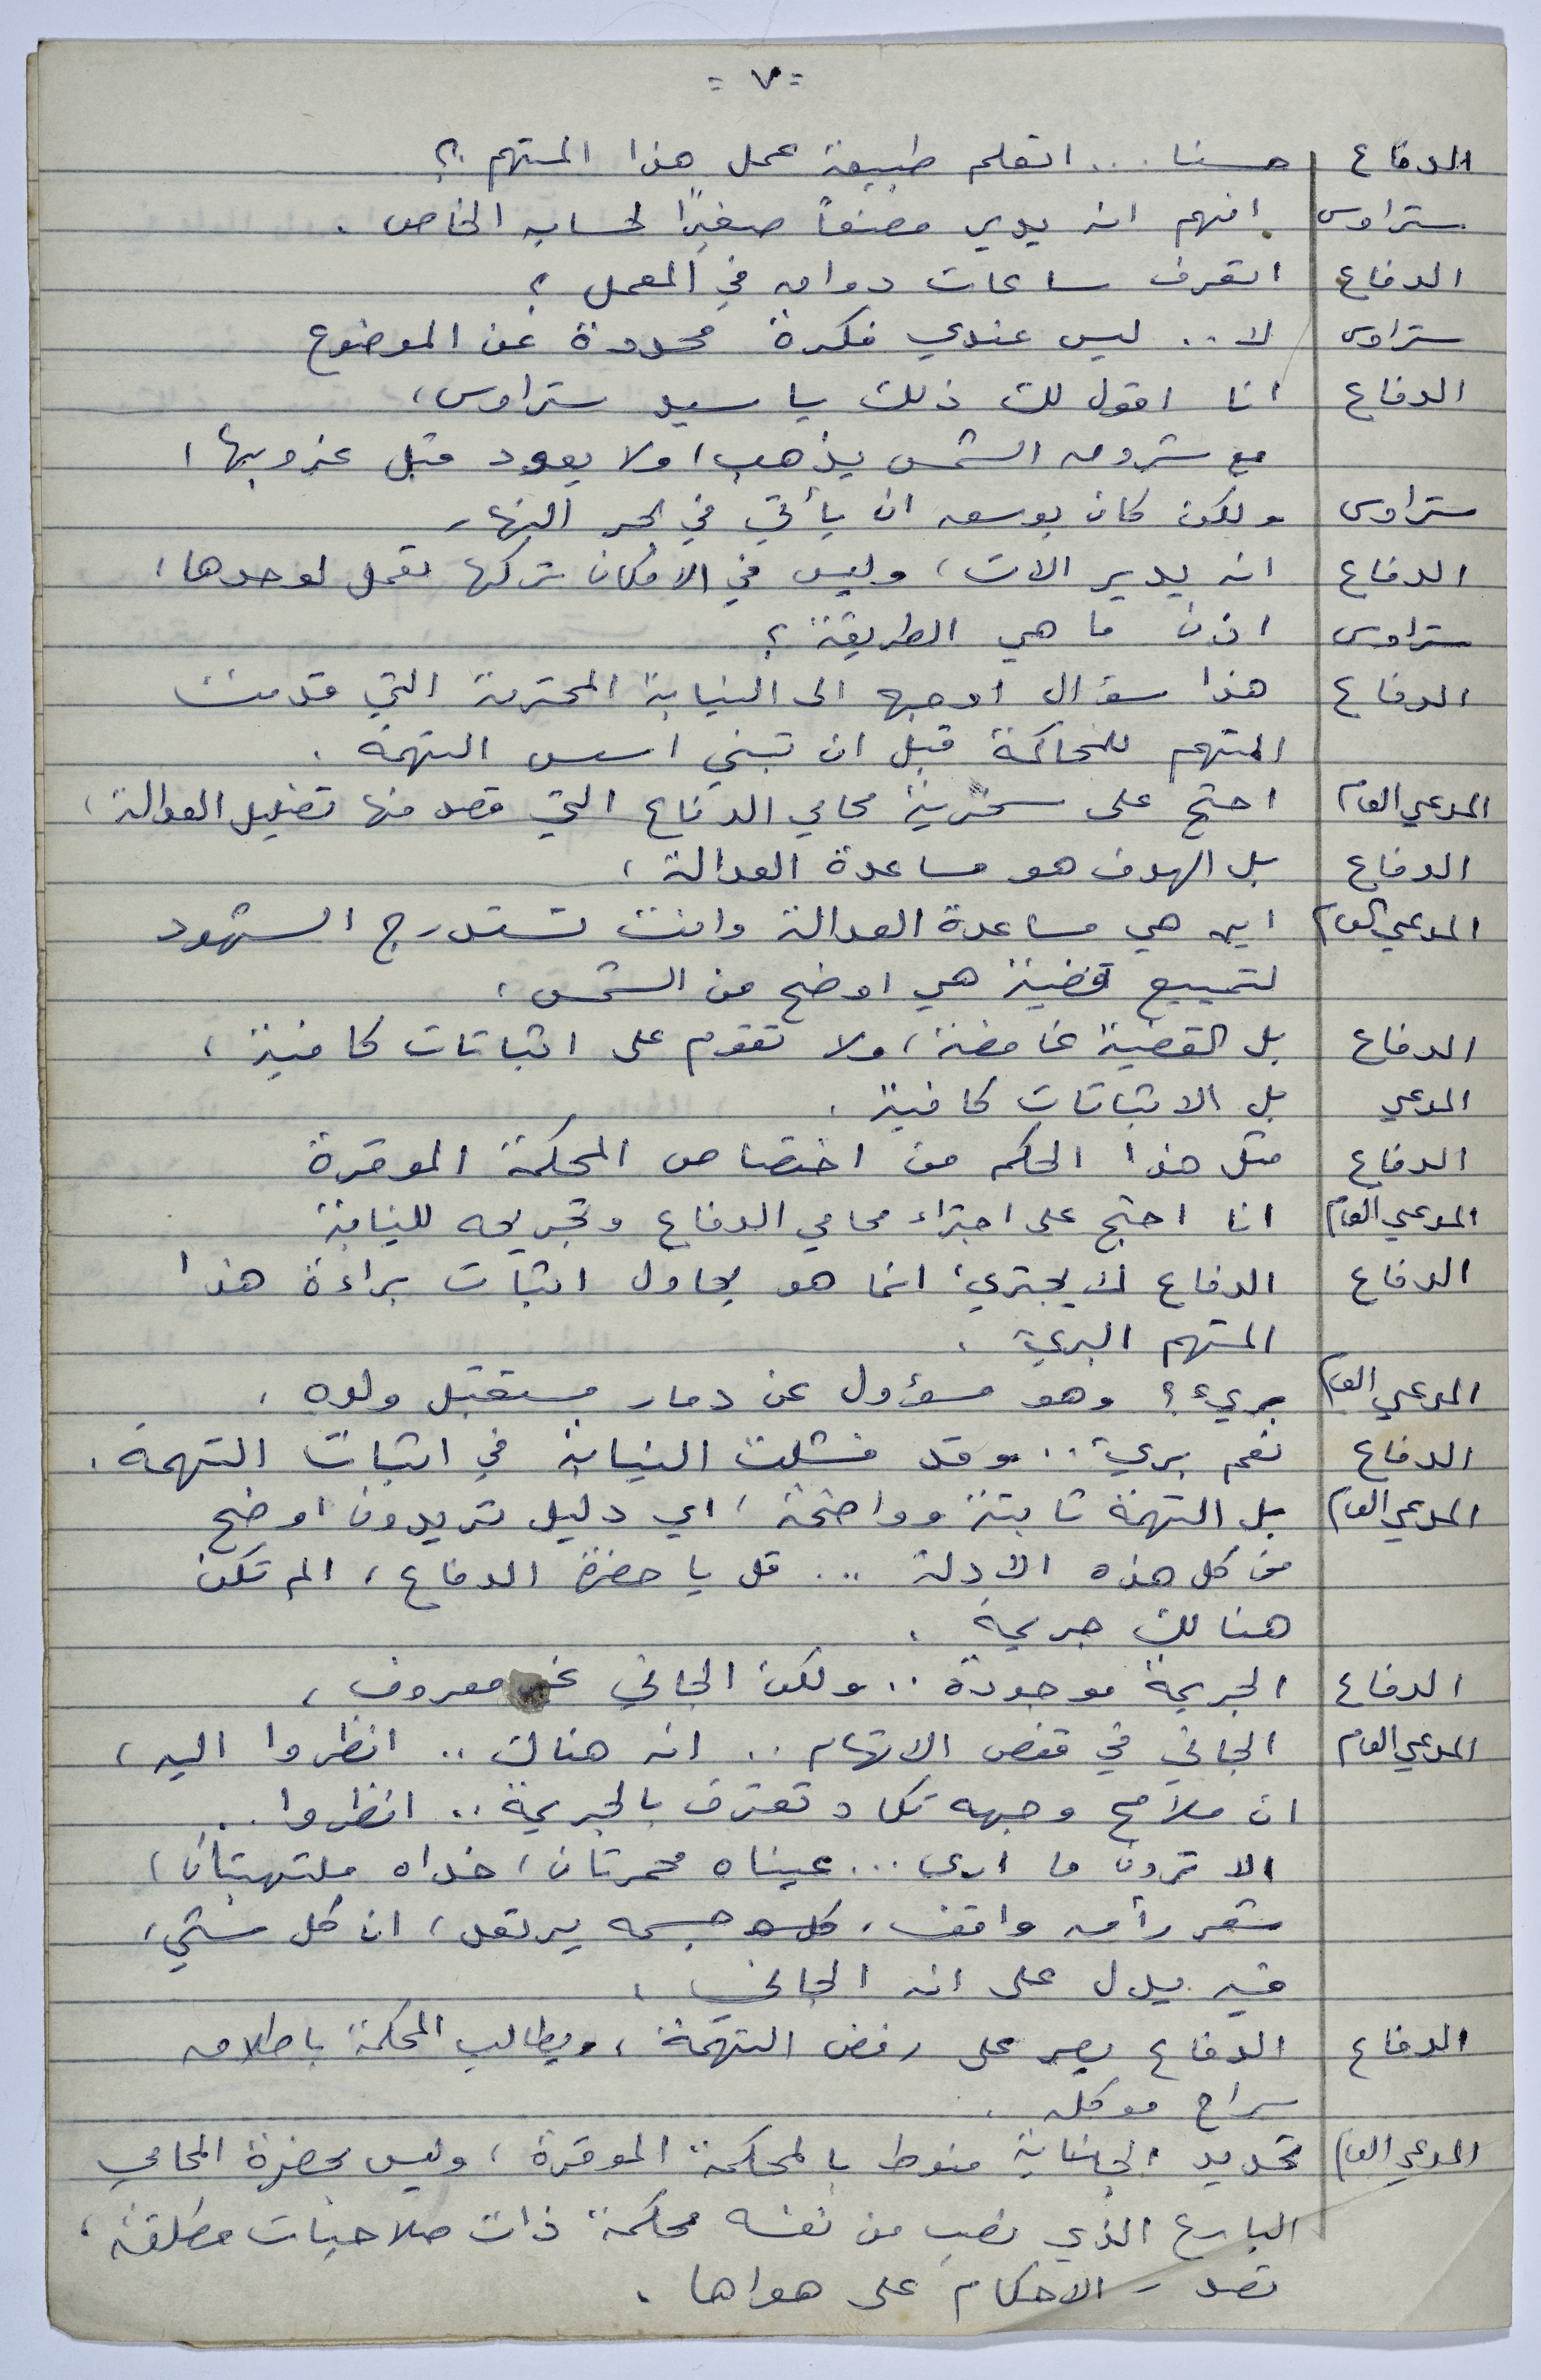 = ٧ =
الدفاع حسنا ... اتعلم طبيعة عمل هذا المتهم ؟
ستراوس افهم انه يدير مصنعاً صغيرًا لحسابه الخاص .
الدفاع اتعرف ساعات دوامه في المعمل ؟
ستراوس لا .. ليس عندي فكرة محددة عن الموضوع
الدفاع انا اقول لك ذلك يا سيد ستراوس ،
مع شروق الشمس يذهب ، ولا يعود قبل غروبها ،
ستراوس ولكن كان بوسعه ان يأتي في النهار
الدفاع انه يدير الات ، وليس في الامكان تركها تعمل لوحدها ،
ستراوس اذن ما هي الطريقة ؟
الدفاع هذا سؤال اوجهه الى النيابة المحترمة التي قدمت
المتهم للمحاكمة قبل ان تبني اسس التهمة .
المدعي العام احتج على سخرية محامي الدفاع التي قصد منها تضليل العدالة ،
الدفاع بل الهدف هو مساعدة العدالة ،
المدعي العام اين هي مساعدة العدالة وانت تستدرج الشهود
لتمييع قضية هي اوضح من الشمس ،
الدفاع بل القضية غامضة ، ولا تقوم على اثباتات كافية ،
المدعي بل الاثباتات كافية .
الدفاع مثل هذا الحكم من اختصاص المحكمة الموقرة
المدعي العام انا احتج على اجتراء محامي الدفاع وتجريحه للنيابة
الدفاع الدفاع لا يجترئ ، انما هو يحاول اثبات براءة هذا
المتهم البريء .
المدعي العام بريء ؟ وهو مسؤول عن دمار مستقبل ولده ،
الدفاع نعم بريء .. وقد فشلت النيابة في اثبات التهمة .
المدعي العام بل التهمة ثابتة وواضحة ، اي دليل تريدون اوضح
من كل هذه الأدلة ... قل يا حضرة الدفاع ، الم تكن
هنالك جريمة .
الدفاع الجريمة موجودة .. ولكن الجاني غير معروف ،
المدعي العام الجاني في قفص الاتهام .. انه هناك .. انظروا اليه ،
ان ملامح وجهه تكاد تعترف بالجريمة .. انظروا ..
الا ترون ما ارى ... عيناه محمرتان ، خداه ملتهبتان ،
شعر رأسه واقف ، كل جسمه يرتعد ، ان كل شيء
فيه يدل على انه الجاني ،
الدفاع الدفاع يصر على رفض التهمة ، ويطالب المحكمة باطلاق
سراح موكله .
المدعي العام تحديد الجناية منوط بالمحكمة الموقرة ، وليس بحضرة المحامي
البارع الذي نصب من نفسه محكمة ذات صلاحيات مطلقة ،
تصدر الاحكام على هواها .